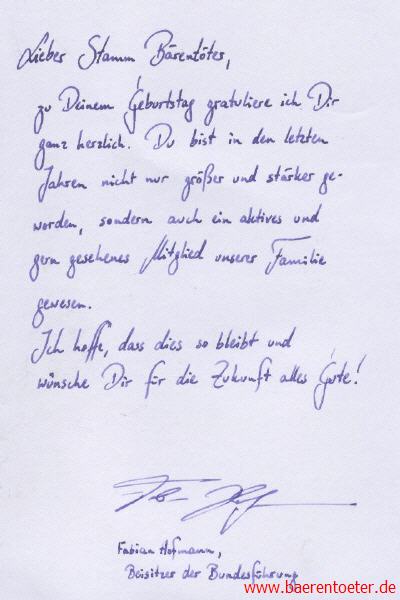 Lieber Stamm Bärentöter,
zu Deinem Geburtstag gratuliere ich Dir
ganz herzlich. Du bist in den letzten
Jahren nicht nur größer und stärker ge-
worden, sondern auch ein aktives und
gern gesehenes Mitglied unserer Familie
gewesen.
Ich hoffe, dass dies so bleibt und
wünsche Dir für die Zukunft alles Gute!
Fabian Hofmann,
Beisitzer der Bundesführung
www.baerentoeter.de